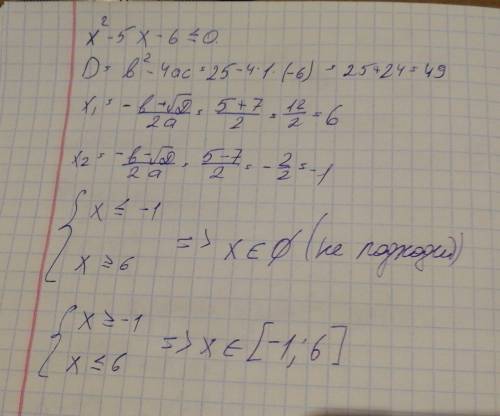 x² - 5x - 6 ≤ 0.
D = b² - 4ac = 25 - 4·1·(-6) = 25 + 24 = 49
x₁ = (-b + √D)/2a = (5+7)/2 = 12/2 = 6
x₂ = (-b - √D)/2a = (5-7)/2 = -2/2 = -1
{ x ≤ -1
x ≥ 6 => x ∈ ∅ (не подходит)
{ x ≥ -1
x ≤ 6 => x ∈ [-1; 6]